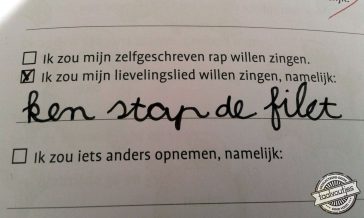 ☐ Ik zou mijn zelfgeschreven rap willen zingen.
☒ Ik zou mijn lievelingslied willen zingen, namelijk:
ken stap de filet
☐ Ik zou iets anders opnemen, namelijk:
taalvoutjes